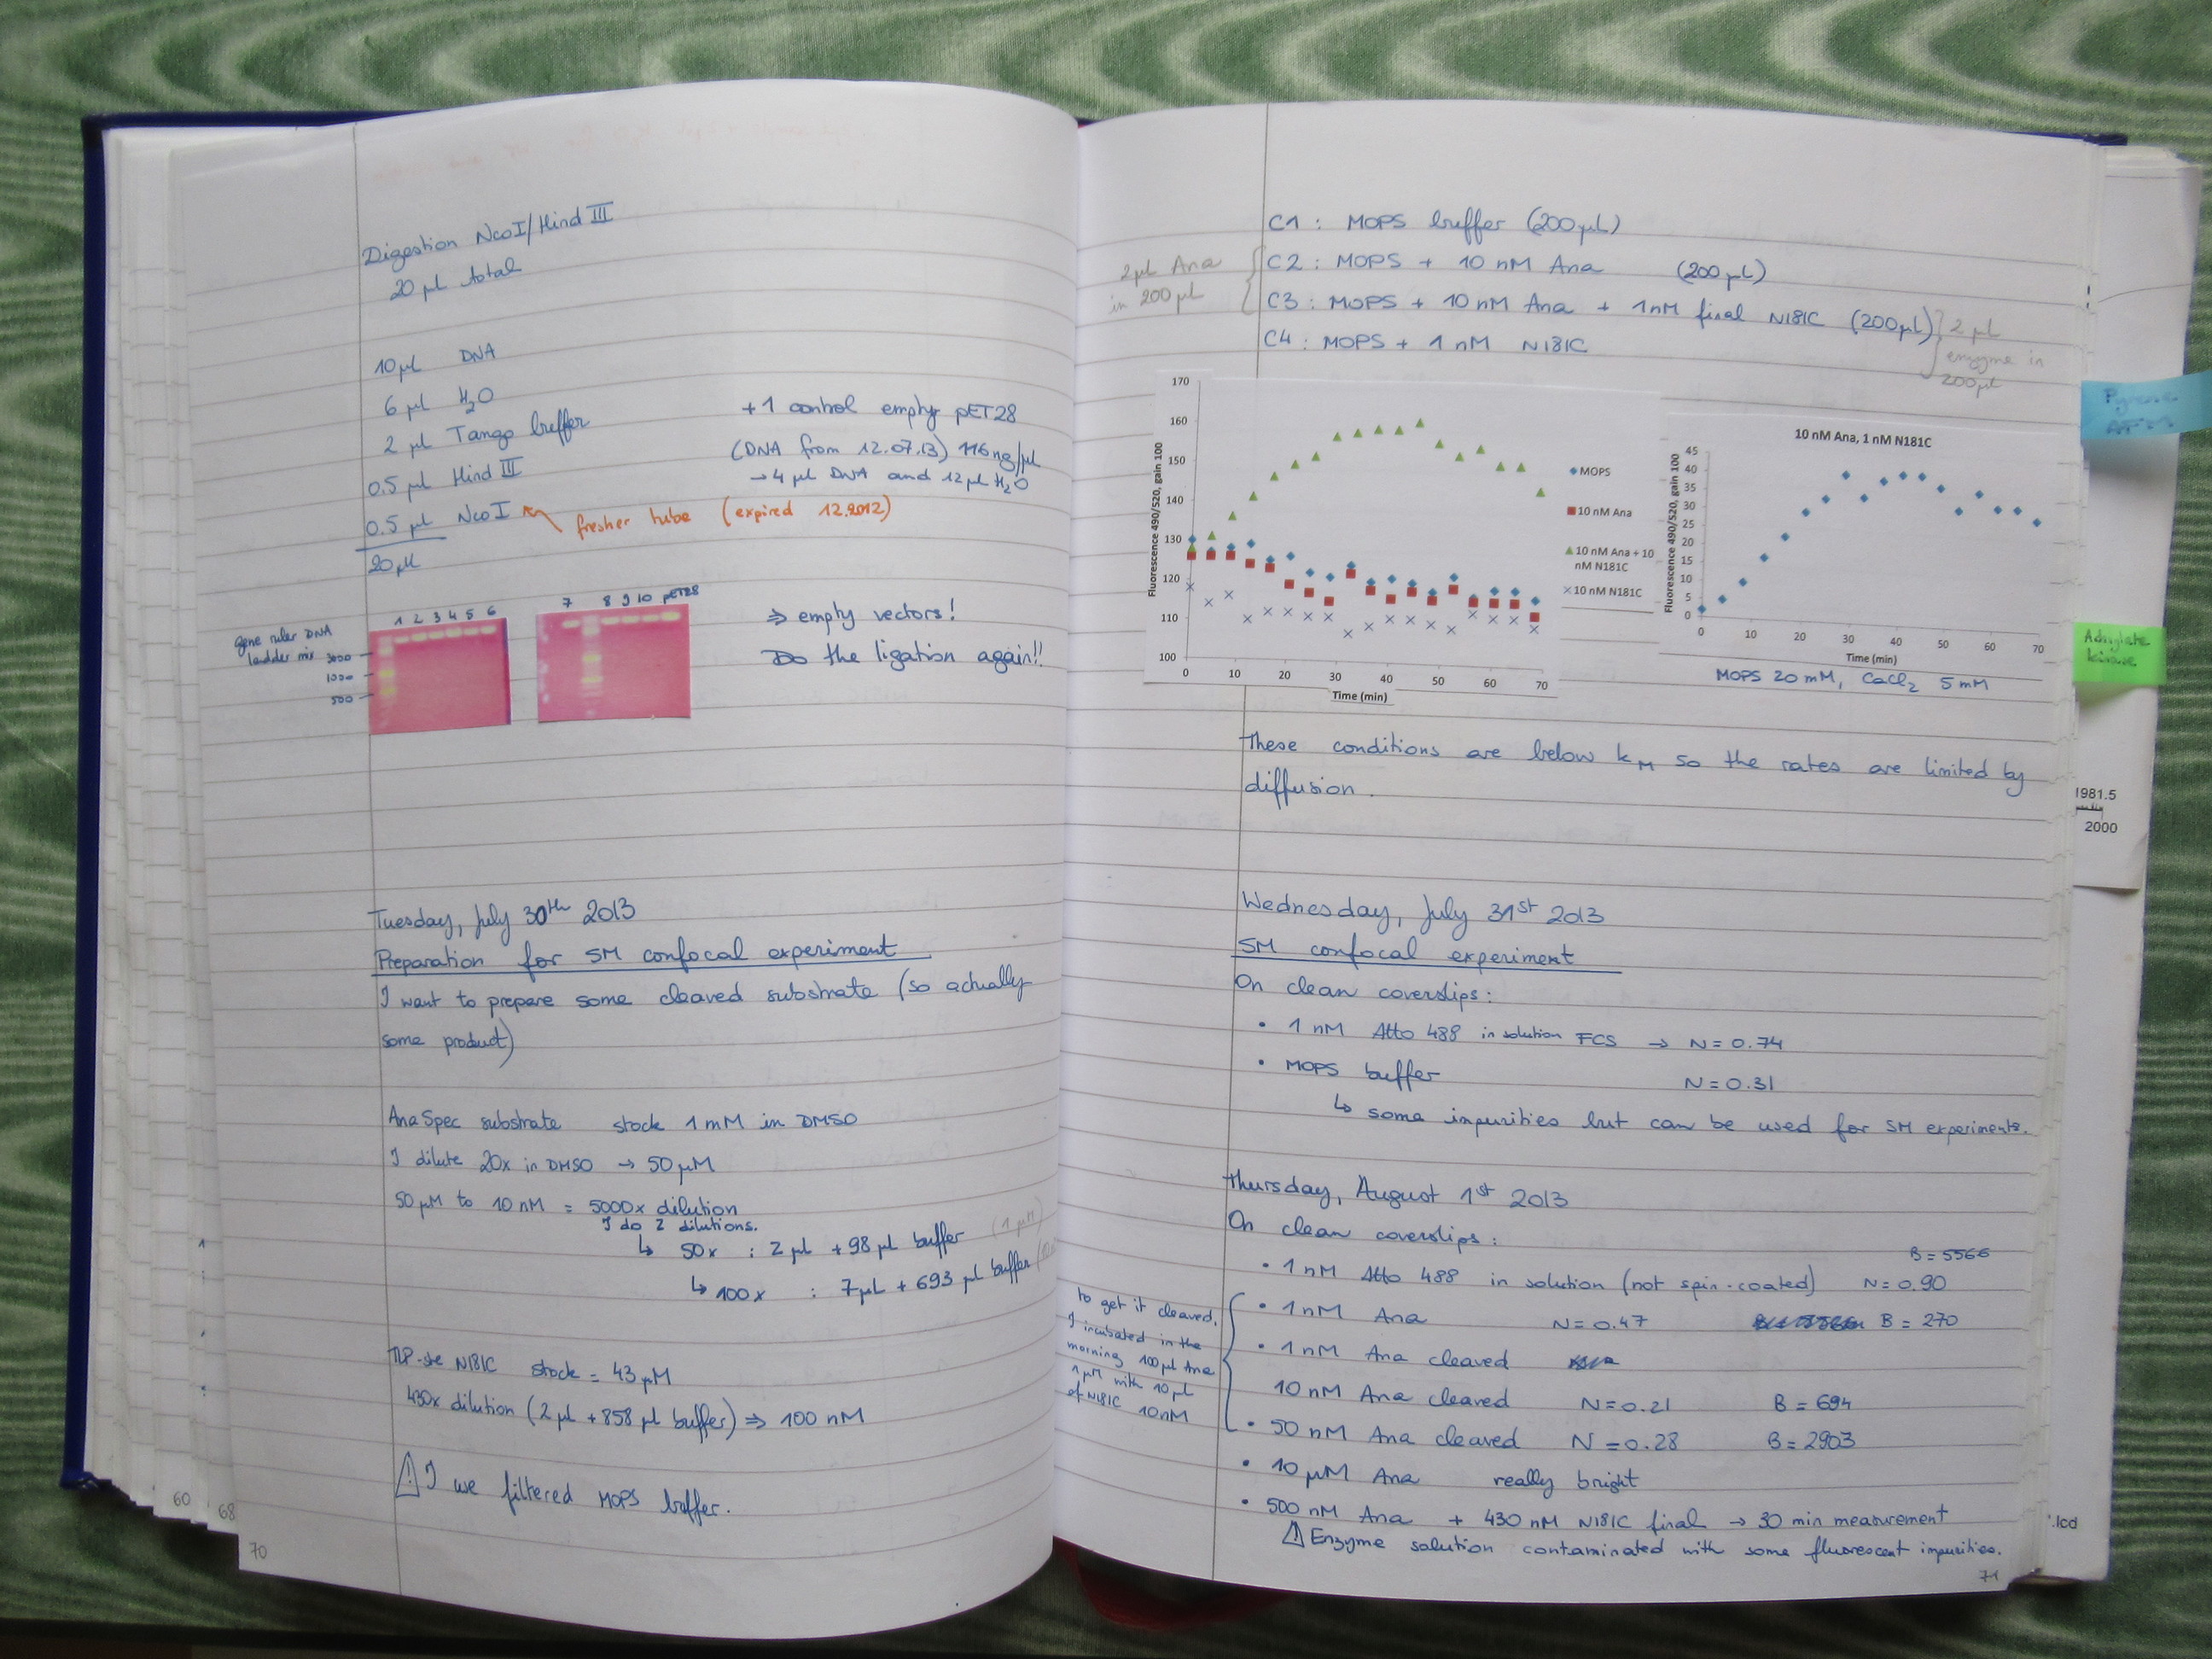 Digestion NcoI/Hind III
20 µl total
10 µl DNA
6 µl H2O
2 µl Tango buffer
0.5 µl Hind III
0.5 µl NcoI
fresher tube (expired 12.2012)
20 µl
+1 control empty pET28
(DNA from 12.07.13) 116 ng/µl
→ 4 µl DNA and 12 µl H2O
1 2 3 4 5 6
7 8 9 10 pET28
gene ruler DNA
ladder mix 3000
1000
500
⇒ empty vectors!
Do the ligation again!!
Tuesday, July 30th 2013
Preparation for SM confocal experiment
I want to prepare some cleaved substrate (so actually
some product)
AnaSpec substrate stock 1 mM in DMSO
I dilute 20x in DMSO → 50 µM
50 µM to 10 nM = 5000x dilution
I do 2 dilutions.
↳ 50x : 2 µl + 98 µl buffer (1 µM)
↳ 100x : 7 µL + 693 µl buffer
N181C stock = 43 µM
430x dilution (2 µl + 858 µl buffer) ⇒ 100 nM
⚠ I we filtered MOPS buffer.
60
68
70
C1 : MOPS buffer (200 µL)
C2 : MOPS + 10 nM Ana (200 µL)
C3 : MOPS + 10 nM Ana + 1 nM final N181C (200 µL)
C4 : MOPS + 1 nM N181C
2 µl Ana
in 200 µl
2 µl
enzyme in
200 µl
170
160
150
140
130
120
110
100
Fluorescence 490/520, gain 100
0 10 20 30 40 50 60 70
Time (min)
MOPS
10 nM Ana
10 nM Ana + 10
nM N181C
10 nM N181C
10 nM Ana, 1 nM N181C
45
40
35
30
25
20
15
10
5
0
Fluorescence 490/520, gain 100
0 10 20 30 40 50 60 70
Time (min)
MOPS 20 mM, CaCl2 5 mM
These conditions are below kM so the rates are limited by
diffusion.
Wednesday, July 31st 2013
SM confocal experiment
On clean coverslips :
• 1 nM Atto 488 in solution FCS → N = 0.74
• MOPS buffer N = 0.31
↳ some impurities but can be used for SM experiments.
Thursday, August 1st 2013
On clean coverslips :
B = 5566
• 1 nM Atto 488 in solution (not spin-coated) N = 0.90
• 1 nM Ana N = 0.47 B = 270
• 1 nM Ana cleaved
10 nM Ana cleaved N = 0.21 B = 694
• 50 nM Ana cleaved N = 0.28 B = 2903
• 10 µM Ana really bright
• 500 nM Ana + 430 nM N181C final → 30 min measurement
⚠ Enzyme solution contaminated with some fluorescent impurities.
to get it cleaved,
I incubated in the
morning 100 µl Ana
1 µM with 10 µl
of N181C 10 nM
71
Pyrene
AFM
Adenylate
kinase
1981.5
2000
.lcd